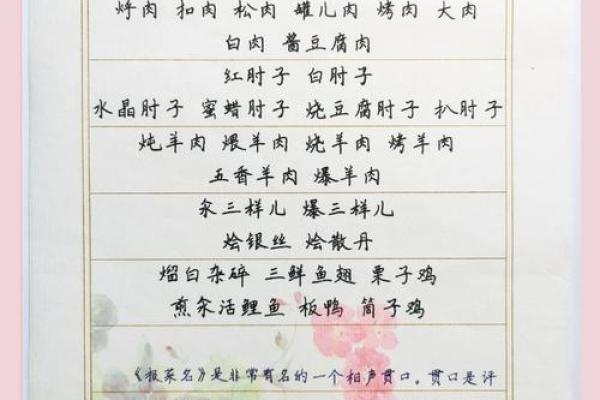 烀肉 扣肉 松肉 罐儿肉 烤肉 大肉
白肉 酱豆腐肉
红肘子 白肘子
水晶肘子 蜜蜡肘子 烧豆腐肘子 扒肘子
炖羊肉 煨羊肉 烧羊肉 烤羊肉
五香羊肉 爆羊肉
汆三样儿 爆三样儿
烩银丝 烩散丹
熘白杂碎 三鲜鱼翅 栗子鸡
煎汆活鲤鱼 板鸭 筒子鸡
《报菜名》是非常有名的一个相声贯口。贯口是评